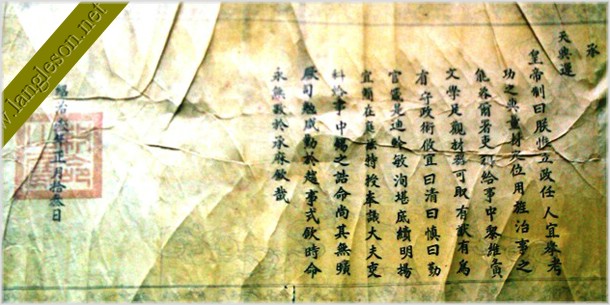 承
天興運
皇帝制曰朕惟立政任人宜舉考
功之典量材定位用雍治事之
能茲爾署吏科給事中黎維寅
文學足觀材器可取有猷有為
有守政術攸宜曰清曰慎曰勤
官箴是迪敏洵堪庶績明揚
宜爾在庭特授奉議大夫吏
科給事中錫之誥命尚其無曠
厥司勉服勤於趨事式欽時命
永無斁於承庥欽哉
紹治年正月拾叁日
w.langleson.net